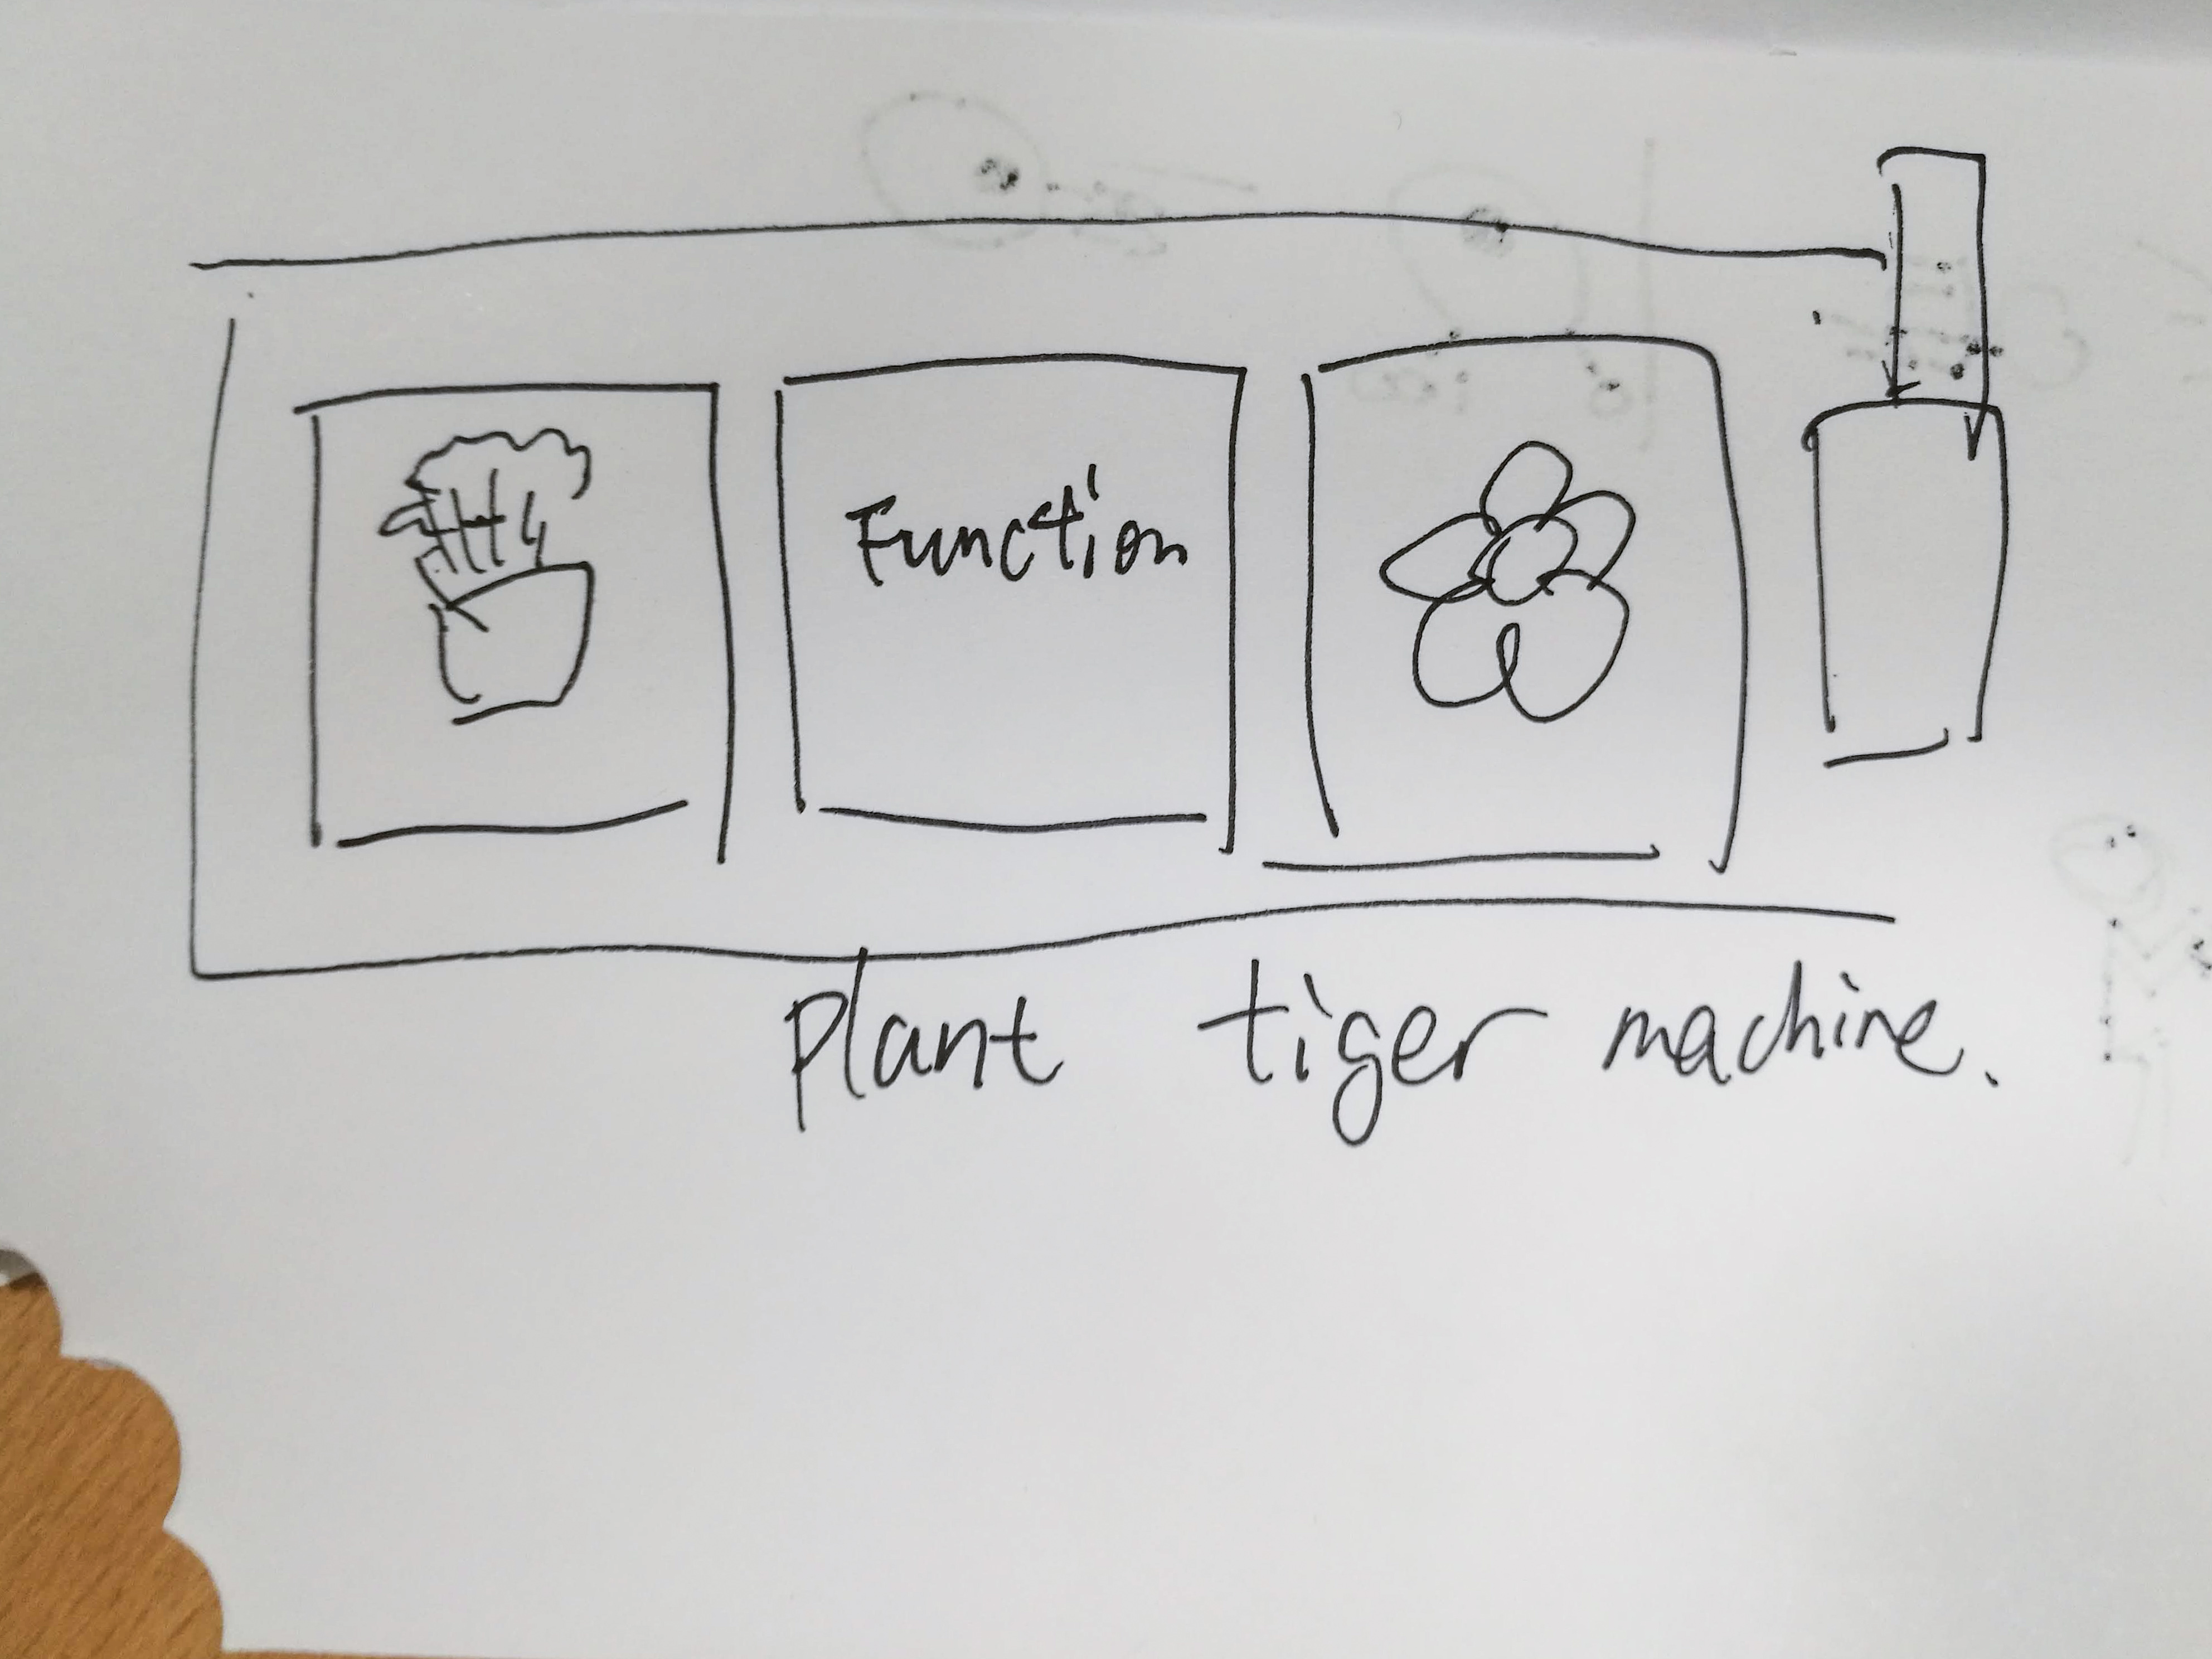 Function
plant tiger machine.